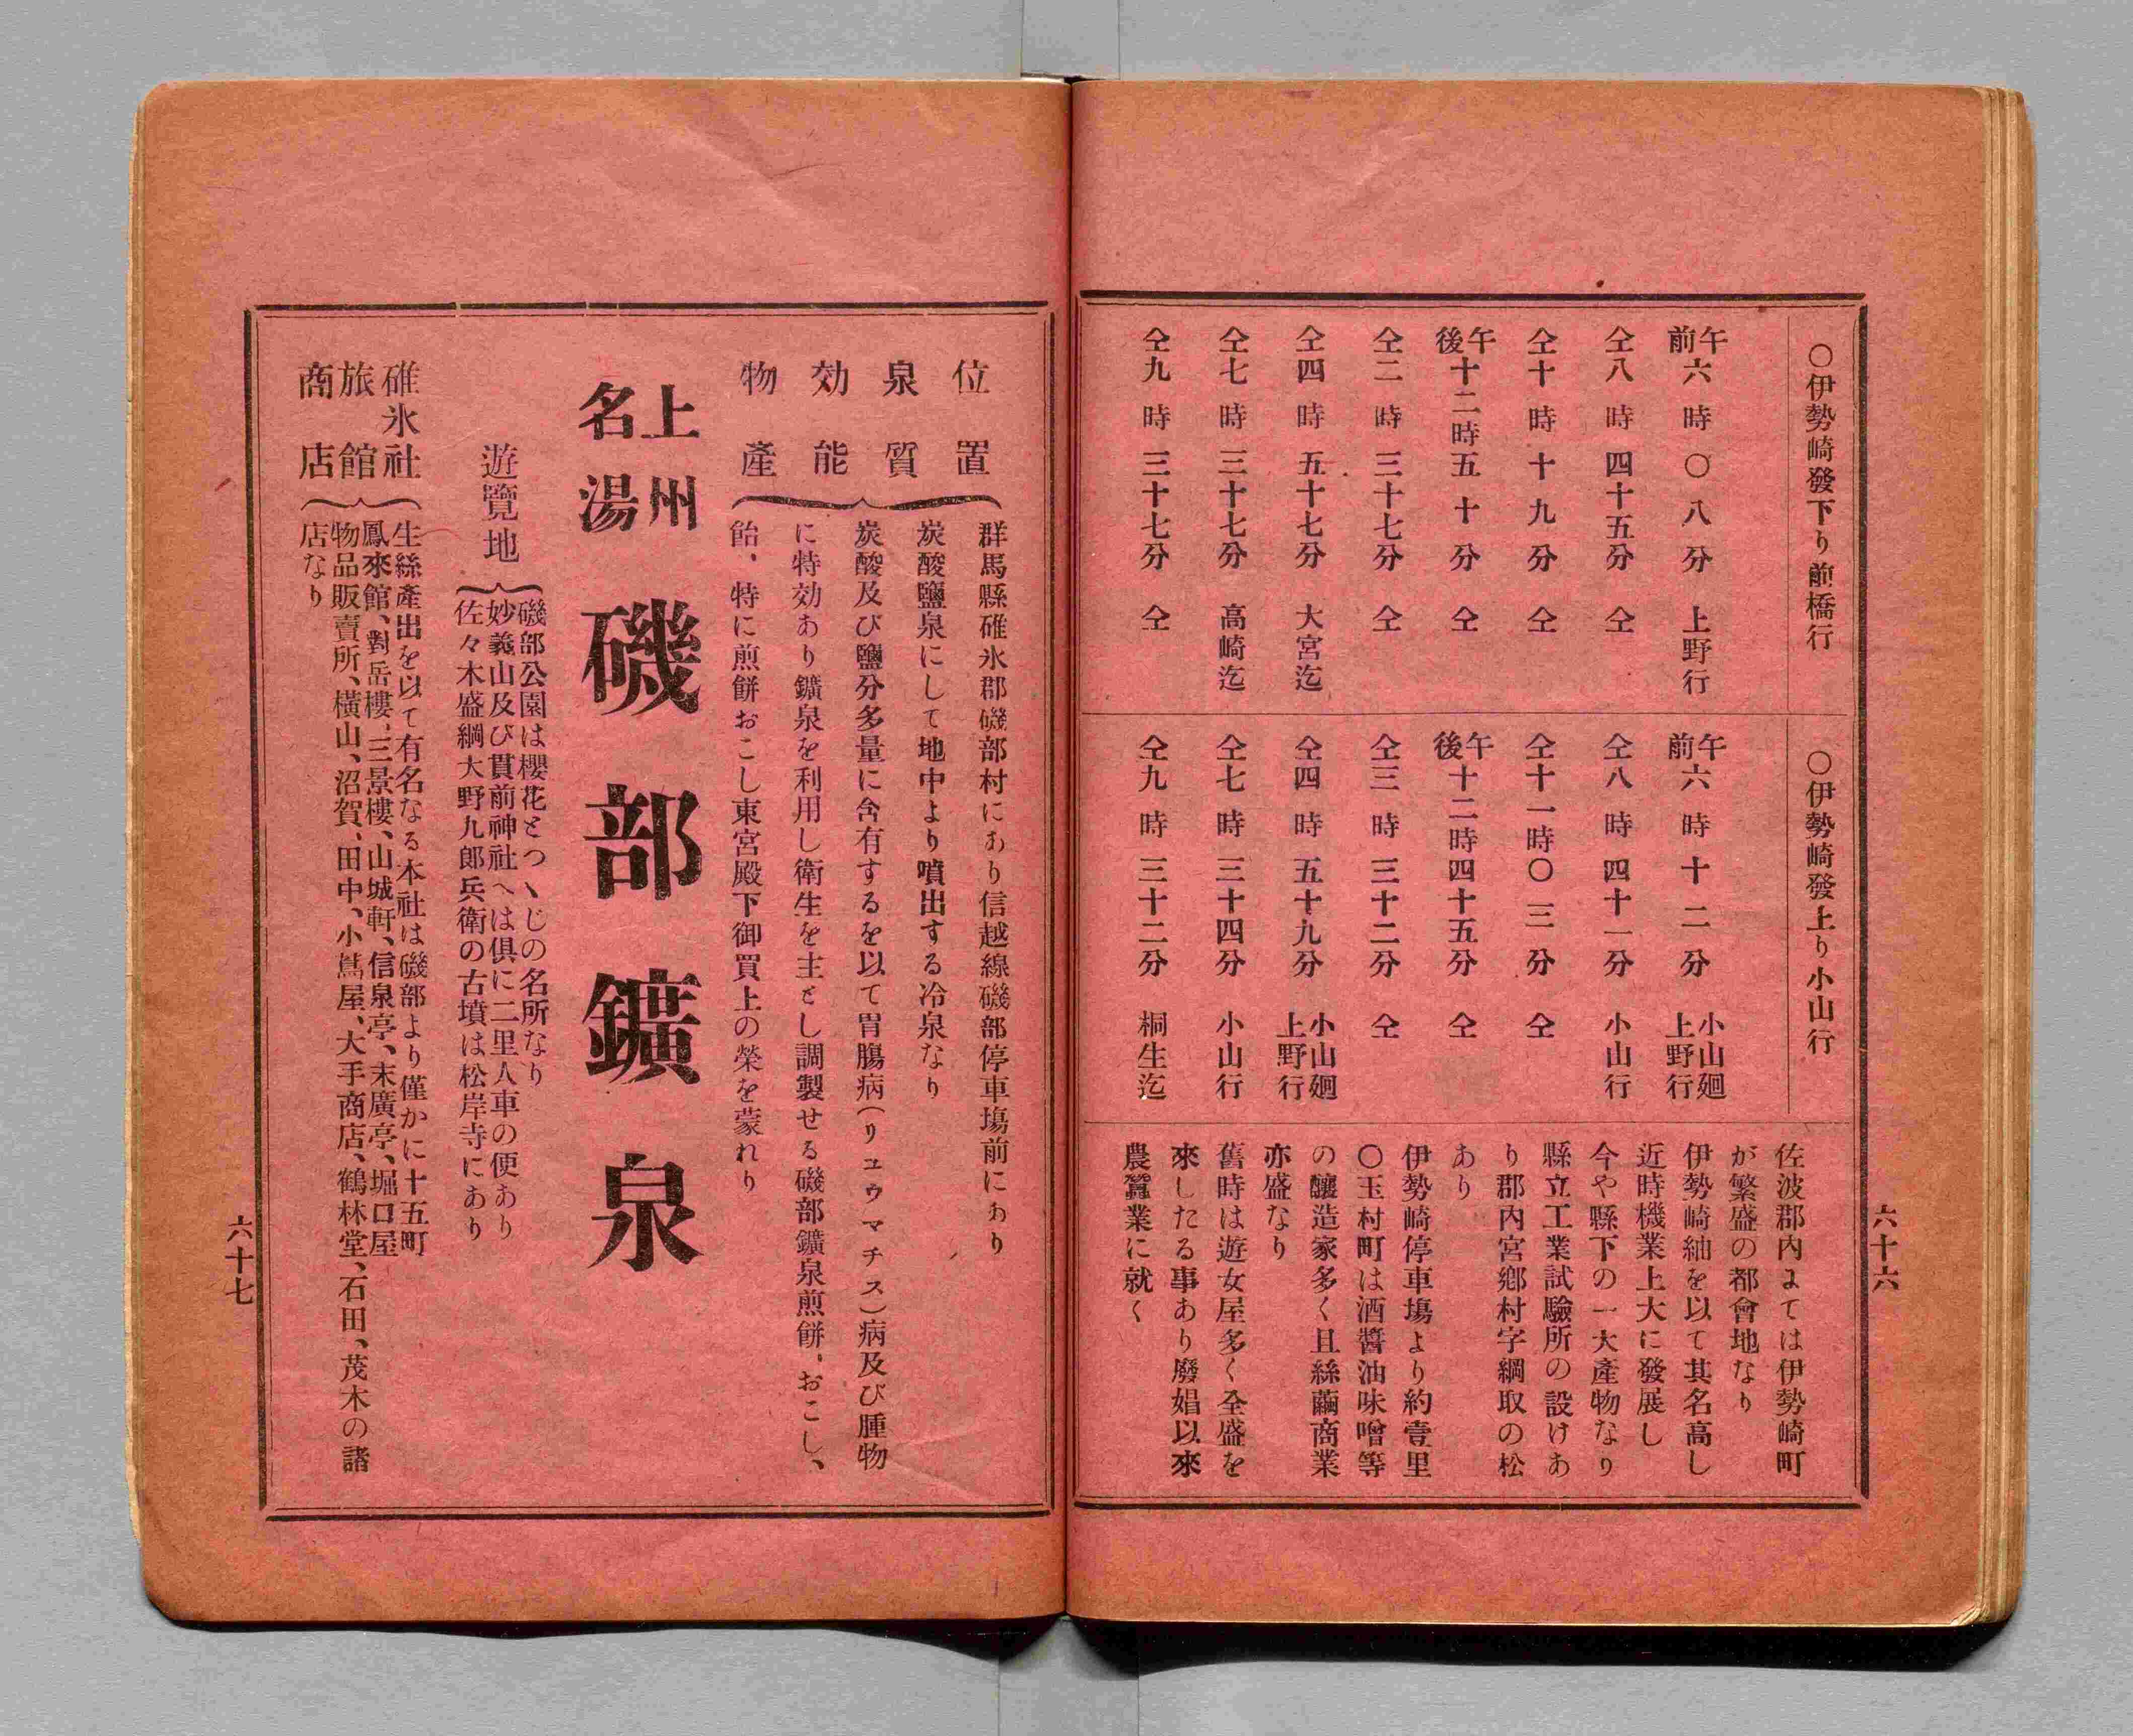 六十六
〇伊勢崎發下り前橋行
午前六時〇八分 上野行
仝八時四十五分 仝
仝十時十九分 仝
午後十二時五十分 仝
仝二時三十七分 仝
仝四時五十七分 大宮迄
仝七時三十七分 高崎迄
仝九時三十七分 仝
〇伊勢崎發上り小山行
午前六時十二分 小山廻上野行
仝八時四十一分 小山行
仝十一時〇三分 仝
午後十二時四十五分 仝
仝三時三十二分 仝
仝四時五十九分 小山廻上野行
仝七時三十四分 小山行
仝九時三十二分 桐生迄
佐波郡内よては伊勢崎町
が繁盛の都會地なり
伊勢崎紬を以て其名高し
近時機業上大に發展し
今や縣下の一大產物なり
縣立工業試驗所の設けあ
り郡内宮鄕村字綱取の松
あり
伊勢崎停車塲より約壹里
〇玉村町は酒醬油味噌等
の釀造家多く且絲繭商業
亦盛なり
舊時は遊女屋多く全盛を
來したる事あり廢娼以來
農蠶業に就く
位置
泉質
効能
物產
群馬縣碓氷郡磯部村にあり信越線磯部停車塲前にあり
炭酸鹽泉にして地中より噴出する冷泉なり
炭酸及び鹽分多量に含有するを以て胃膓病(リユウマチス)病及び腫物
に特効あり鑛泉を利用し衛生を主とし調製せる磯部鑛泉煎餅、おこし、
飴、特に煎餅おこし東宮殿下御買上の榮を蒙れり
上州
名湯
磯部鑛泉
遊覽地
磯部公園は櫻花とつゝじの名所なり
妙義山及び貫前神社へは俱に二里人車の便あり
佐々木盛綱大野九郎兵衛の古墳は松岸寺にあり
碓氷社
旅館
商店
生絲產出を以て有名なる本社は磯部より僅かに十五町
鳳來館、對岳樓、三景樓、山城軒、信泉亭、末廣亭、堀口屋
物品販賣所、橫山、沼賀、田中、小蔦屋、大手商店、鶴林堂、石田、茂木の諸
店なり
六十七